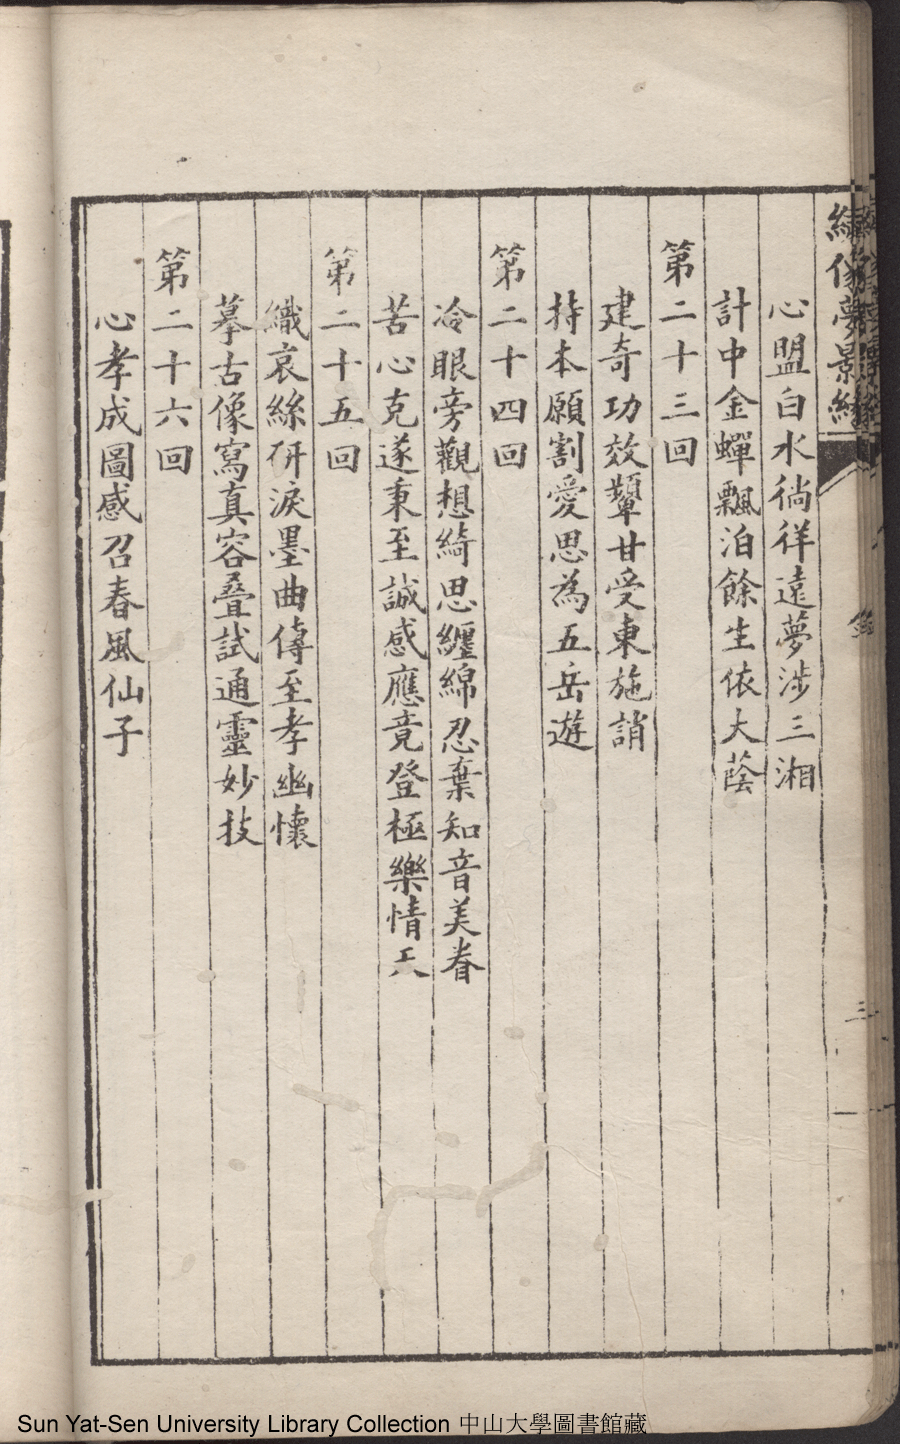 繡像夢景緣
心盟白水徜徉遠夢涉三湘
計中金蟬飄泊餘生依大蔭
第二十三回
建奇功效顰甘受東施誚
持本願割愛思為五岳遊
第二十四回
冷眼旁觀想綺思纏綿忍棄知音美眷
苦心克遂秉至誠感應竟登極樂情天
第二十五回
織哀絲研淚墨曲傳至孝幽懷
摹古像寫真容叠試通靈妙技
第二十六回
心孝成圖感召春風仙子
Sun Yat-Sen University Library Collection 中山大學圖書館藏